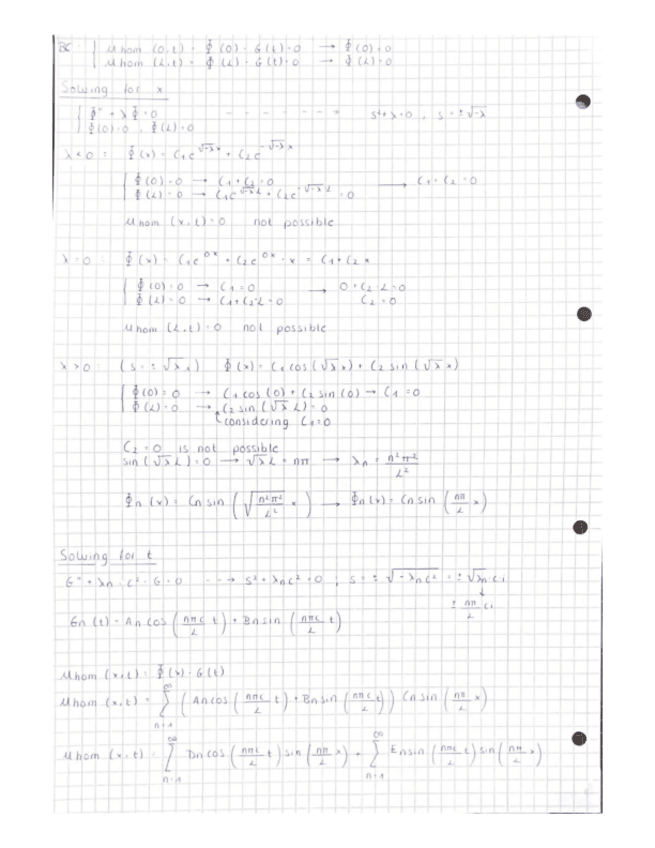 BC: { u hom (0,t) = ϕ(0) · G(t) = 0 → ϕ(0) = 0
u hom (L,t) = ϕ(L) · G(t) = 0 → ϕ(L) = 0
Solving for x
{ ϕ'' + λϕ = 0 - - - - - - - s² + λ = 0 , s = ± √-λ
ϕ(0) = 0 , ϕ(L) = 0
λ < 0 : ϕ(x) = C1 e^(√-λ x) + C2 e^(-√-λ x)
{ ϕ(0) = 0 → C1 + C2 = 0 → C1 = C2 = 0
ϕ(L) = 0 → C1 e^(√-λ L) + C2 e^(-√-λ L) = 0
u hom (x,t) = 0 not possible
λ = 0 : ϕ(x) = C1 e^(0x) + C2 e^(0x) · x = C1 + C2 x
{ ϕ(0) = 0 → C1 = 0 → 0 + C2 · L = 0
ϕ(L) = 0 → C1 + C2 · L = 0 C2 = 0
u hom (L,t) = 0 not possible
λ > 0 : (s = ± √λ i) ϕ(x) = C1 cos (√λ x) + C2 sin (√λ x)
{ ϕ(0) = 0 → C1 cos (0) + C2 sin (0) → C1 = 0
ϕ(L) = 0 → C2 sin (√λ L) = 0
considering C1 = 0
C2 = 0 is not possible
sin (√λ L) = 0 → √λ L = nπ → λn = n²π²/L²
ϕn (x) = Cn sin (√(n²π²/L²) x) → ϕn (x) = Cn sin (nπ/L x)
Solving for t
G'' + λn · c² · G = 0 - - → s² + λn c² = 0 ; s = ± √(-λn c²) = ± √λn c i
↓
± nπ/L c i
Gn (t) = An cos (nπc/L t) + Bn sin (nπc/L t)
u hom (x,t) = ϕ(x) · G(t)
u hom (x,t) = ∑_{n=1}^{∞} (An cos (nπc/L t) + Bn sin (nπc/L t)) Cn sin (nπ/L x)
u hom (x,t) = ∑_{n=1}^{∞} Dn cos (nπc/L t) sin (nπ/L x) + ∑_{n=1}^{∞} En sin (nπc/L t) sin (nπ/L x)